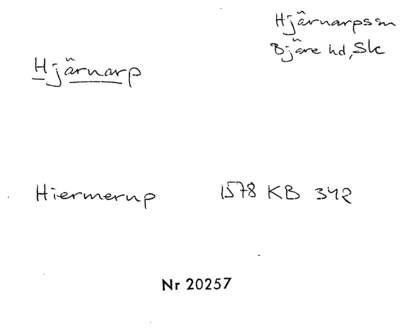 Hjärnarpssn
Bjäre hd, Sk
Hjärnarp
Hiermerup 1578 KB 342
Nr 20257